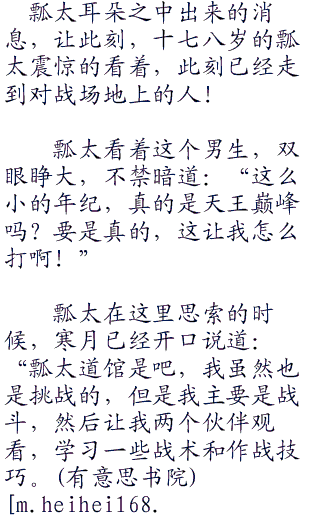 瓢太耳朵之中出来的消
息，让此刻，十七八岁的瓢
太震惊的看着，此刻已经走
到对战场地上的人！
瓢太看着这个男生，双
眼睁大，不禁暗道：“这么
小的年纪，真的是天王巅峰
吗？要是真的，这让我怎么
打啊！”
瓢太在这里思索的时
候，寒月已经开口说道：
“瓢太道馆是吧，我虽然也
是挑战的，但是我主要是战
斗，然后让我两个伙伴观
看，学习一些战术和作战技
巧。(有意思书院)
[m.heihei168.